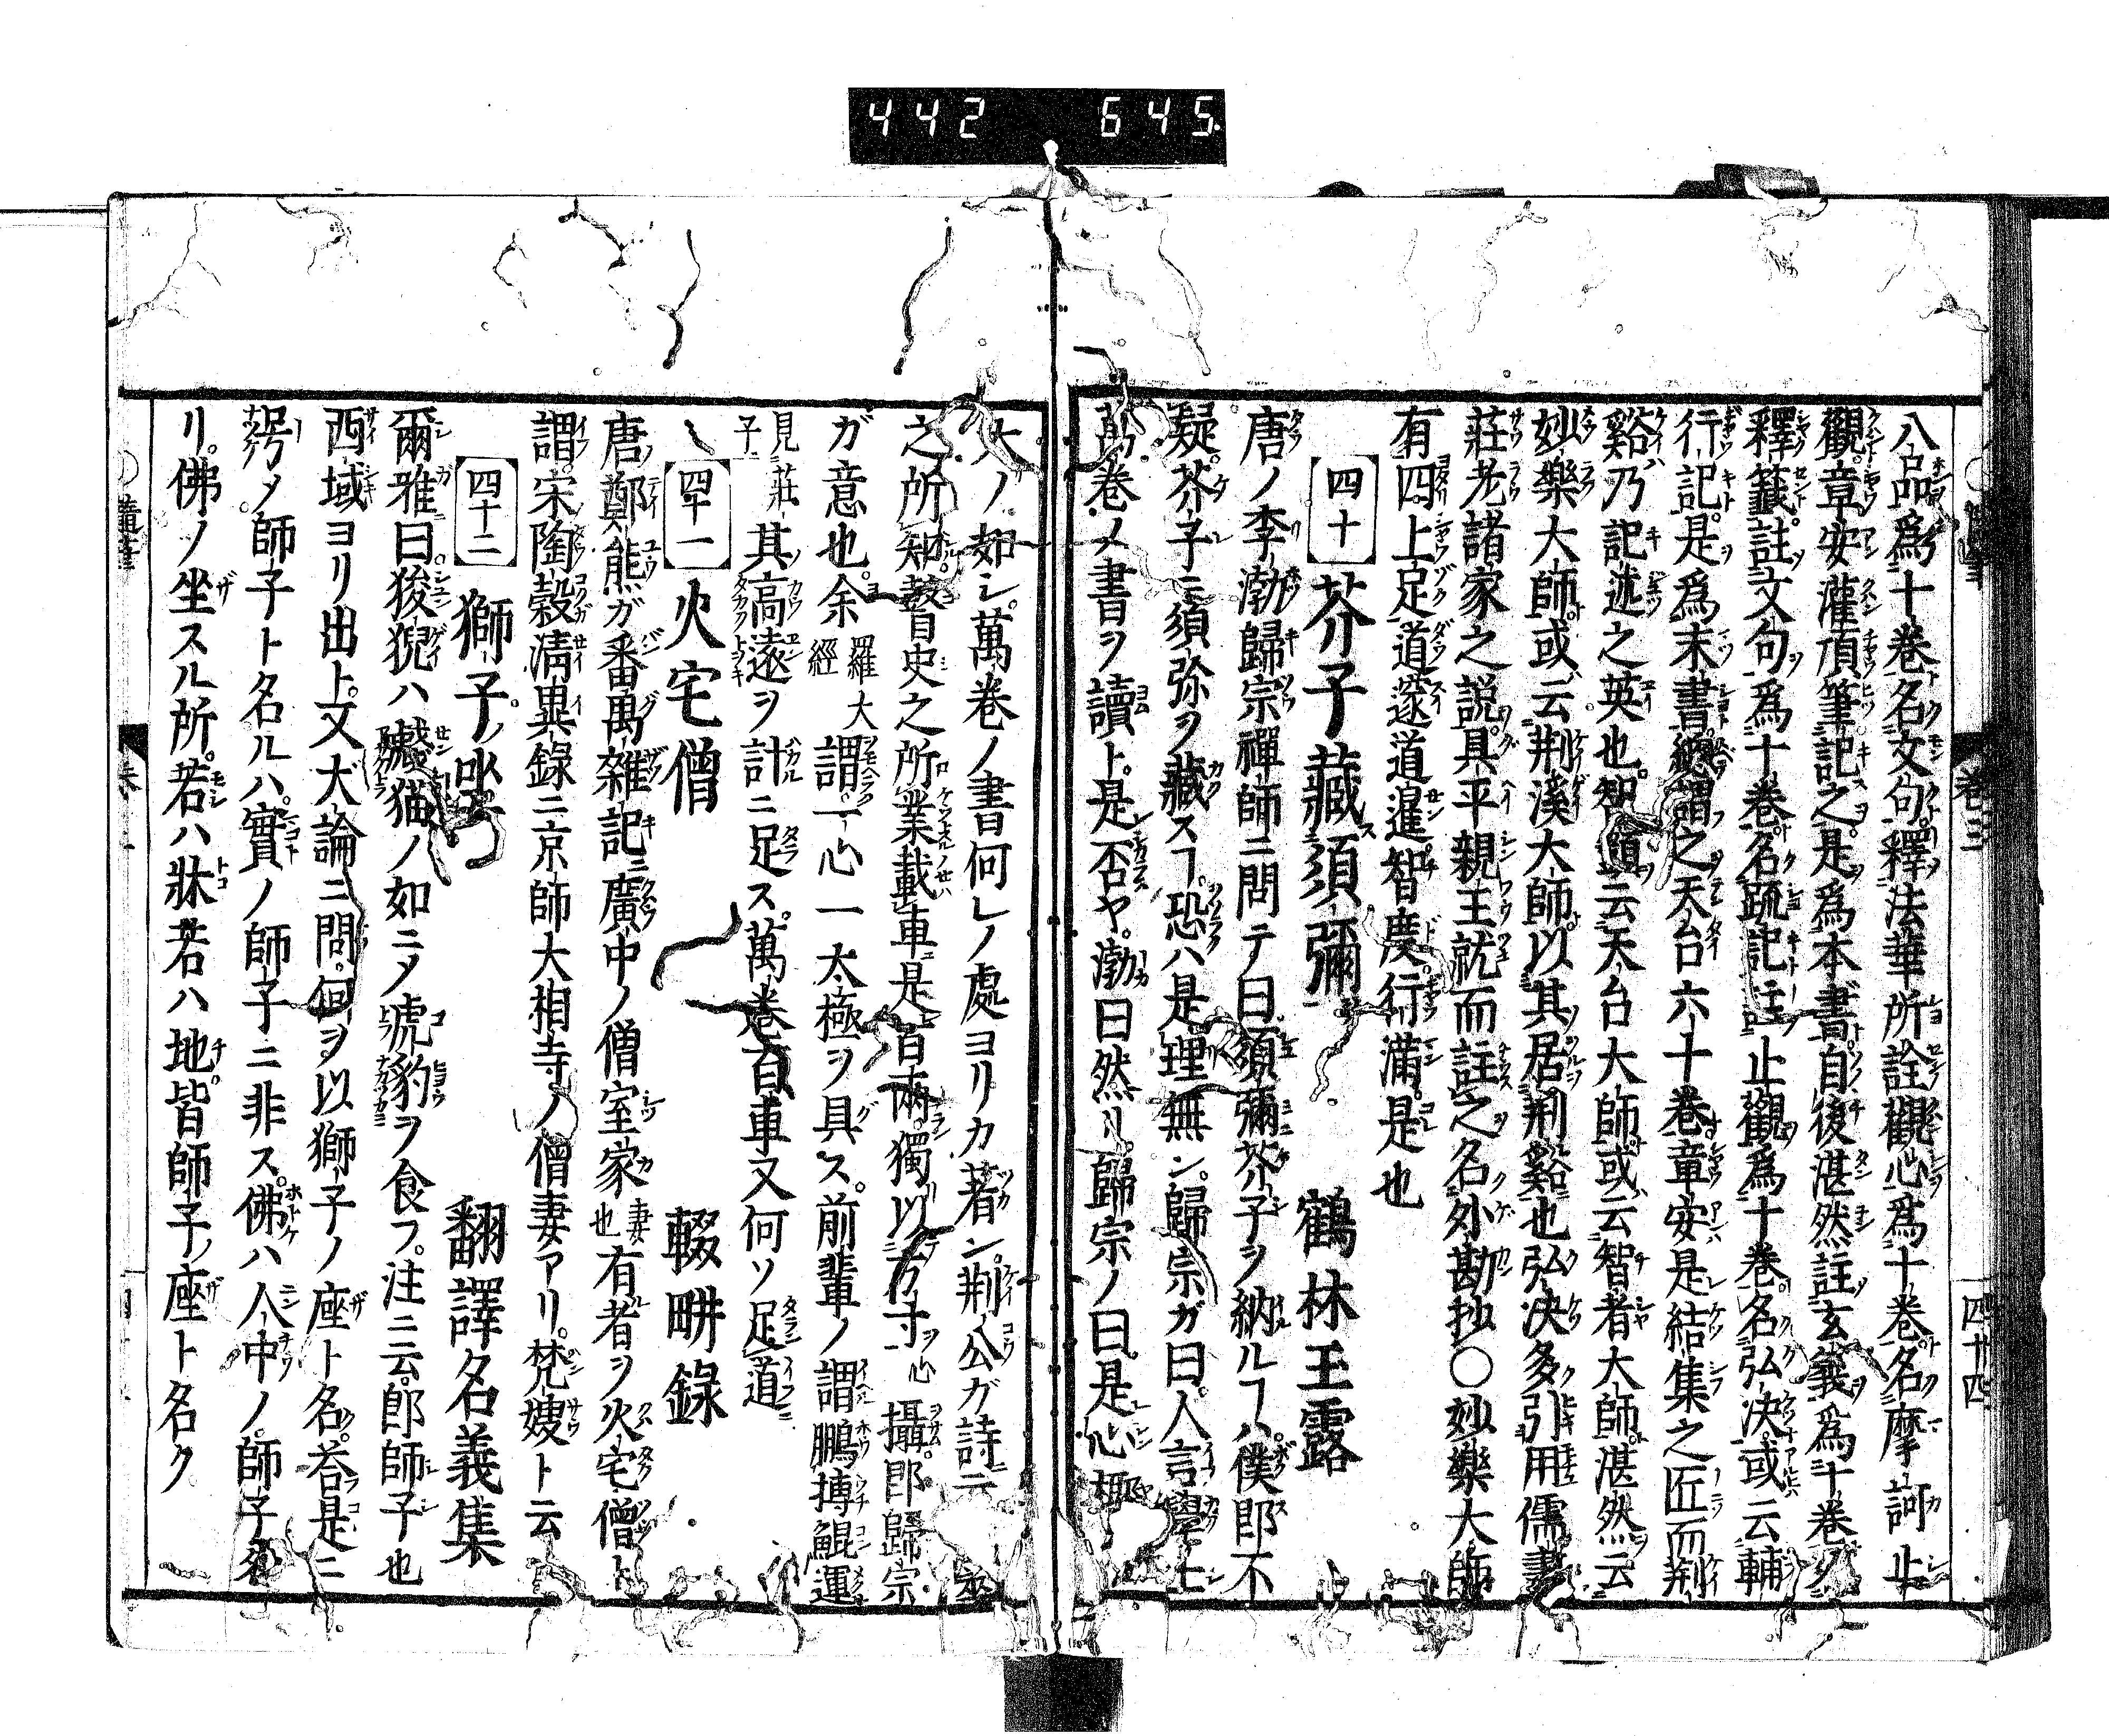 442 645
卷三
四十四
八品爲十卷名文句釋法華所詮觀心爲十卷名摩訶止
觀章安灌頂筆記之是爲本書自後湛然註玄義爲十卷名
釋籤註文句爲十卷名疏記註止觀爲十卷名弘決或云輔
行記是爲末書總謂之天台六十卷章安是結集之匠而荆
谿乃記述之英也智顗云天台大師或云智者大師湛然云
妙樂大師或云荆溪大師以其居荆谿也弘決多引用儒書
莊老諸家之説具平親王就而註之名外勘抄○妙樂大師
有四上足道邃道暹智度行滿是也
四十 芥子藏須彌 鶴林玉露
唐ノ李渤歸宗禪師ニ問テ曰須彌芥子ヲ納ルヿハ僕即不
疑芥子ニ須弥ヲ藏スヿ恐ハ是理無ン歸宗ガ曰人言學士
萬卷ノ書ヲ讀ト是否ヤ渤曰然リ歸宗ノ曰是心椰
大ノ如シ萬卷ノ書何レノ處ヨリカ著ン荆公ガ詩ニ
之所知瞽史之所業載車是百兩獨以方寸心攝即歸宗
ガ意也余羅大經謂一心一太極ヲ具ス前輩ノ謂鵬摶鯤運
見莊子其高遠ヲ計ニ足ス萬卷百車又何ソ足道
四十一 火宅僧 輟畊錄
唐鄭熊ガ番禺雜記ニ廣中ノ僧室家妻也有者ヲ火宅僧ト
謂宋陶穀淸異錄ニ京師大相寺ノ僧妻アリ梵嫂ト云
四十二 獅子ノ坐 翻譯名義集
爾雅曰狻猊ハ虦猫ノ如ニメ虎豹ヲ食フ注ニ云即師子也
西域ヨリ出上又大論ニ問何ヲ以獅子ノ座ト名答是ニ
號メ師子ト名ルハ實ノ師子ニ非ス佛ハ人中ノ師子
リ佛ノ坐スル所若ハ牀若ハ地皆師子ノ座ト名ク